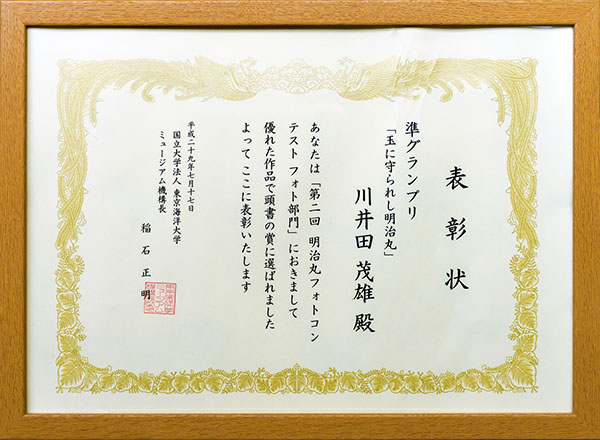 表彰状
準グランプリ
「玉に守られし明治丸」
川井田 茂雄 殿
あなたは「第二回 明治丸フォトコン
テスト フォト部門」におきまして
優れた作品で頭書の賞に選ばれました
よって ここに表彰いたします
平成二十九年七月十七日
国立大学法人 東京海洋大学
ミュージアム機構長
稲石正明